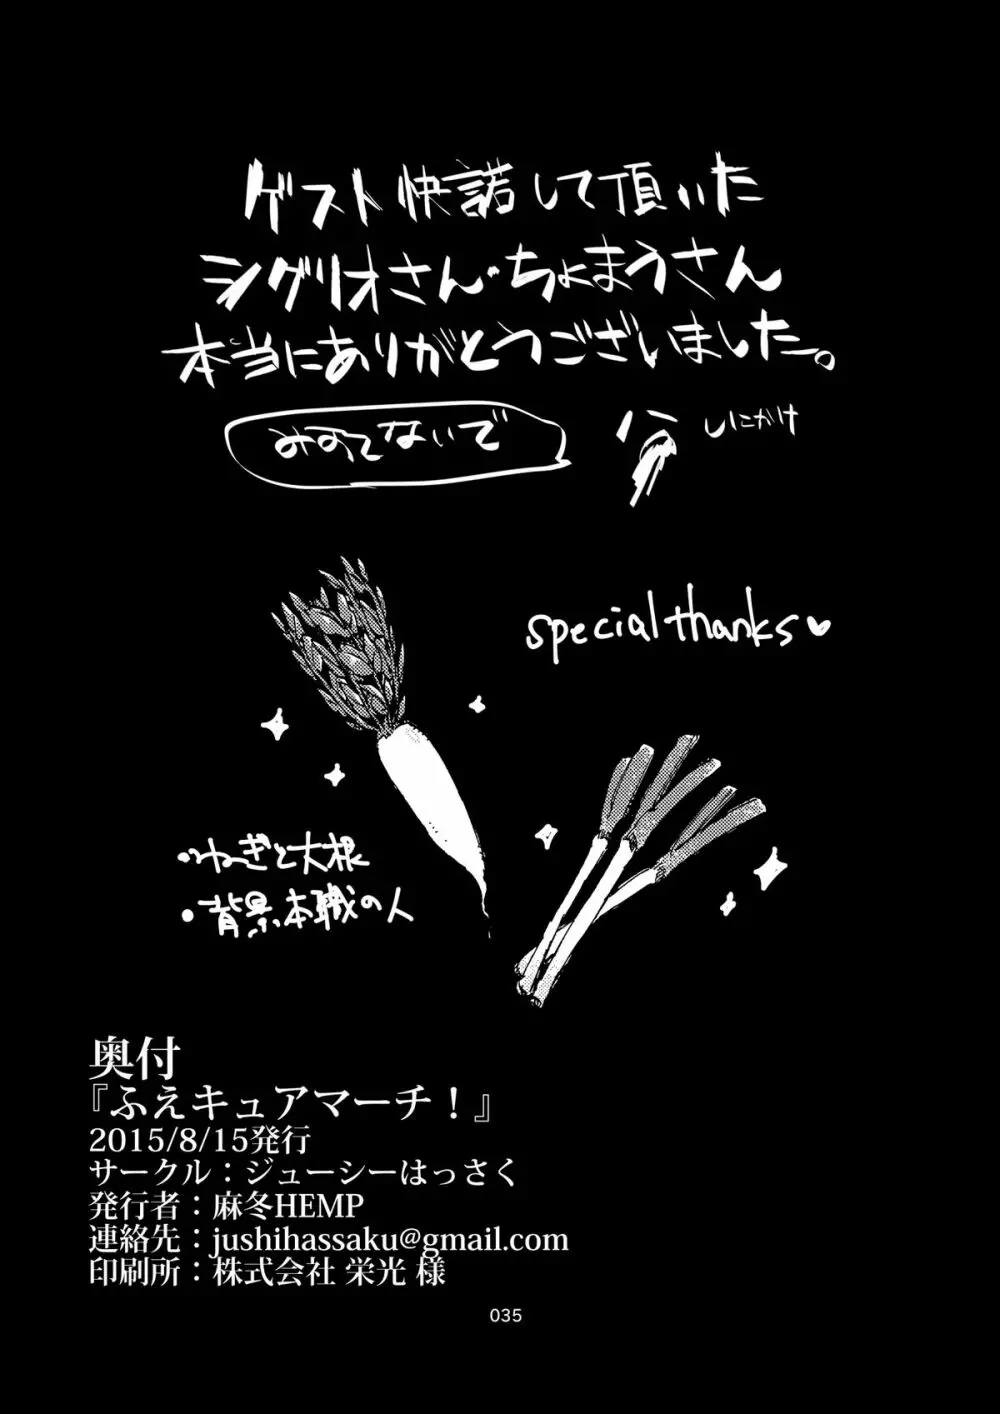 ゲスト快諾して頂いた
シグリオさん・ちょまうさん
本当にありがとうございました。
みすてないで
しにかけ
special thanks♥
・ねぎと大根
・背景本職の人
奥付
『ふえキュアマーチ！』
2015/8/15発行
サークル：ジューシーはっさく
発行者：麻冬HEMP
連絡先：jushihassaku@gmail.com
印刷所：株式会社 栄光 様
035